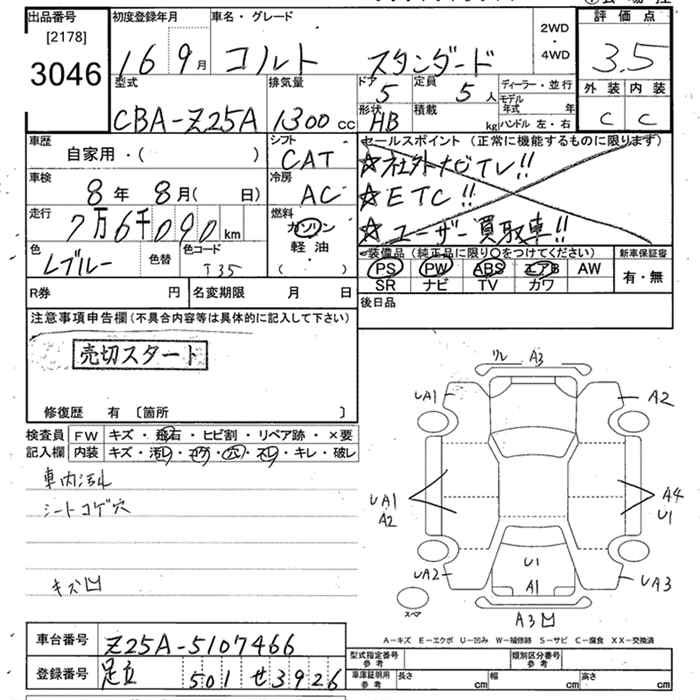 出品番号 [2178] 3046
初度登録年月 16 9月
車名・グレード コルト スタンダード
2WD・4WD
評価点 3.5
外装 C 内装 C
型式 CBA-Z25A
排気量 1300 cc
ドア 5 定員 5人
形状 HB 積載 kg
ディーラー・並行
モデル年式 年
ハンドル 左・右
車歴 自家用・( )
シフト CAT
車検 8年 8月( 日)
冷房 AC
走行 7万6千090 km
燃料 ガソリン 軽油 ( )
色 Lブルー 色替 色コード T35
セールスポイント (正常に機能するものに限ります)
☆社外ナビTV!!
☆ETC!!
☆ユーザー買取車!!
装備品 (純正品に限り○をつけてください) 新車保証書
PS PW ABS エアB AW 有・無
SR ナビ TV カワ
R券 円 名変期限 月 日
後日品
注意事項申告欄 (不具合内容等は具体的に記入して下さい)
売切スタート
修復歴 有 〔箇所 〕
検査員記入欄
FW キズ・飛石・ヒビ割・リペア跡・×要
内装 キズ・汚レ・コゲ・穴・スレ・キレ・破レ
車内汚れ
シートコゲ穴
キズ凹
リレ A3
UA1 A2
UA1 A2
A4 U1
U1
UA2 A1 UA3
スペア
A3凹
A-キズ E-エクボ U-凹み W-補修跡 S-サビ C-腐食 XX-交換済
車台番号 Z25A-5107466
登録番号 足立 501 せ3926
型式指定番号 参考 類別区分番号 参考
車庫証明用 参考 長さ cm 幅 cm 高さ cm